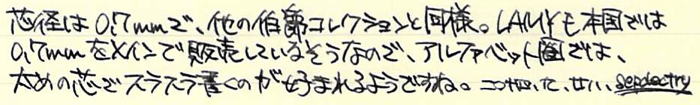 芯径は0.7mmで、他の伯爵コレクションと同様。LAMYも本国では
0.7mmをメインで販売しているそうなので、アルファベット圏では、
太めの芯でスラスラ書くのが好まれるようですね。